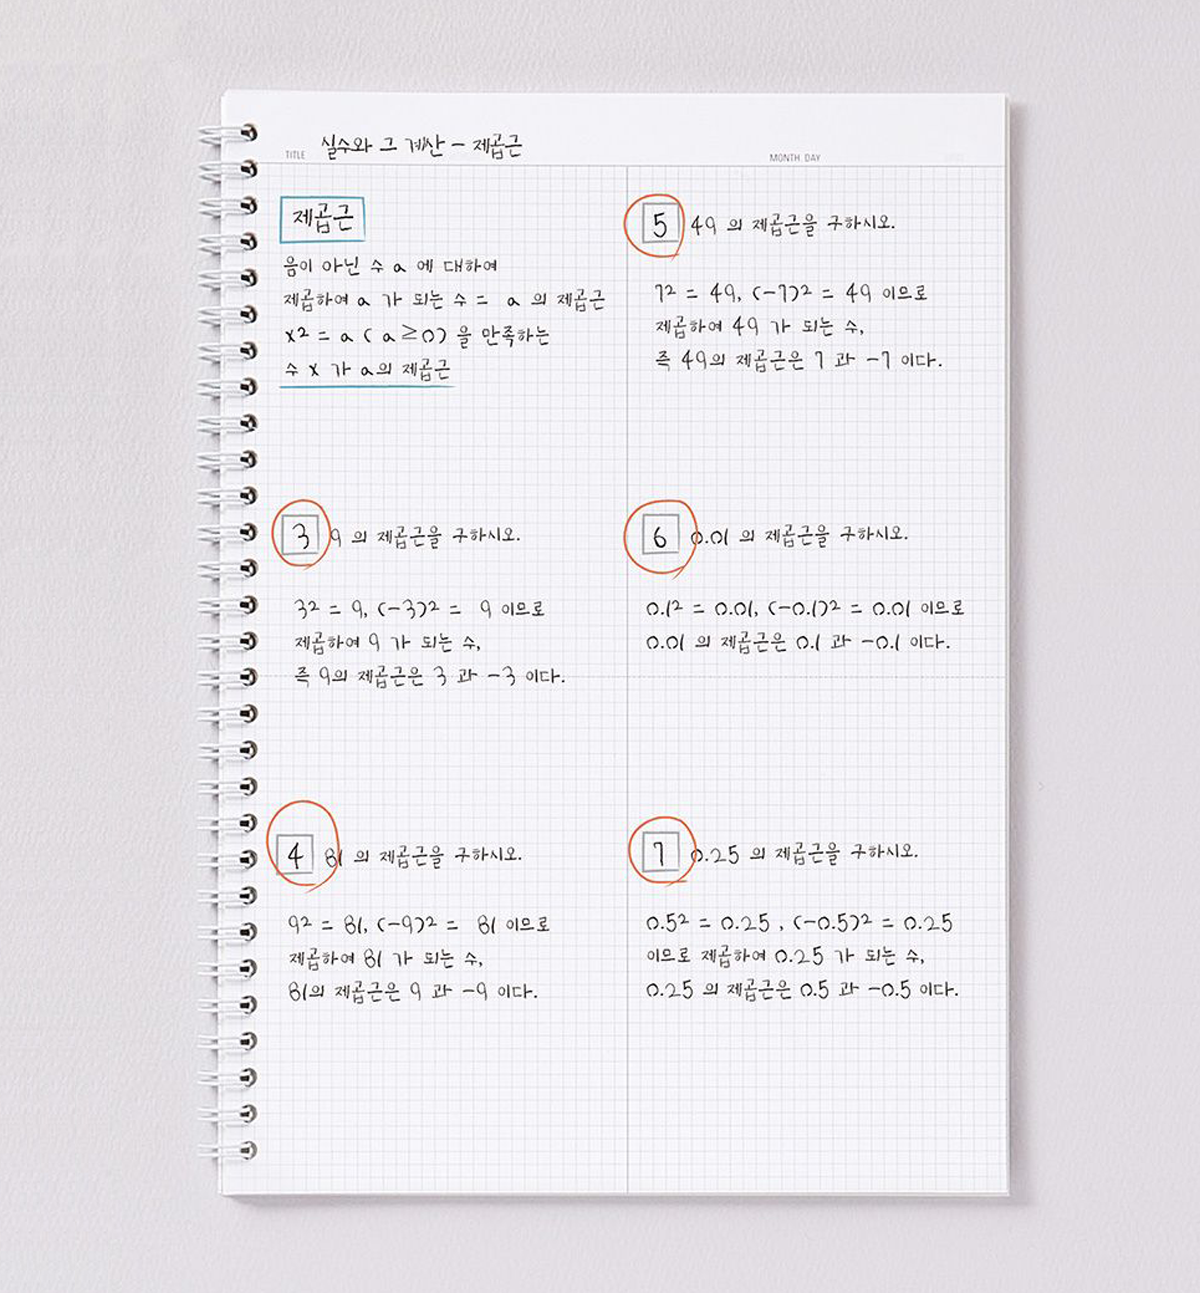 TITLE 실수와 그 계산 - 제곱근
MONTH. DAY
제곱근
음이 아닌 수 a 에 대하여
제곱하여 a 가 되는 수 = a 의 제곱근
x² = a ( a ≥ 0 ) 을 만족하는
수 x 가 a의 제곱근
3 9 의 제곱근을 구하시오.
3² = 9, (-3)² = 9 이므로
제곱하여 9 가 되는 수,
즉 9의 제곱근은 3 과 -3 이다.
4 81 의 제곱근을 구하시오.
9² = 81, (-9)² = 81 이므로
제곱하여 81 가 되는 수,
81의 제곱근은 9 과 -9 이다.
5 49 의 제곱근을 구하시오.
7² = 49, (-7)² = 49 이므로
제곱하여 49 가 되는 수,
즉 49의 제곱근은 7 과 -7 이다.
6 0.01 의 제곱근을 구하시오.
0.1² = 0.01, (-0.1)² = 0.01 이므로
0.01 의 제곱근은 0.1 과 -0.1 이다.
7 0.25 의 제곱근을 구하시오.
0.5² = 0.25 , (-0.5)² = 0.25
이므로 제곱하여 0.25 가 되는 수,
0.25 의 제곱근은 0.5 과 -0.5 이다.